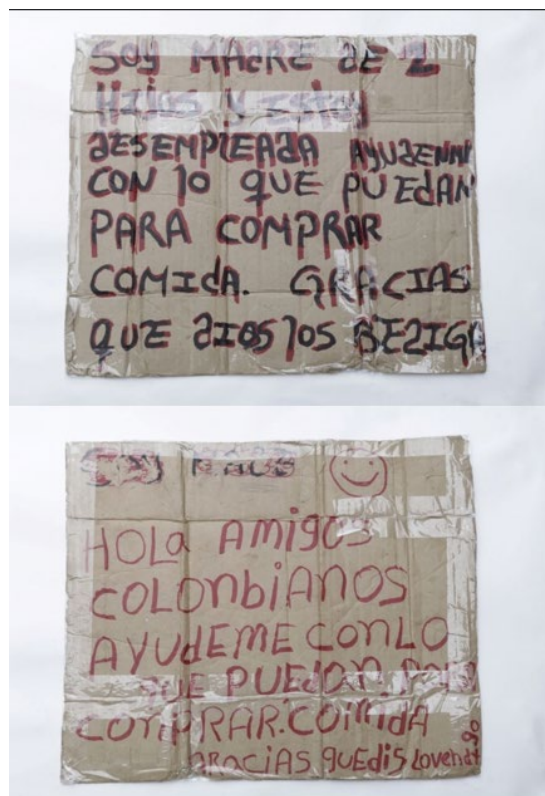 SOY MADRE DE 2
HIJOS Y ESTOY
DESEMPLEADA AYUDENM
CON lO QUE PUEdAN
PARA COMPRAR
COMIdA. GRACIAS
QUE DIOS lOS BEZIGA
HOLa AmigOS
COLOnbiANOS
AYUdEME CONLO
QUE PUEDAN. PARA
COMPRAR. COMIdA
GRACiAS QUEdiS Lovendigo